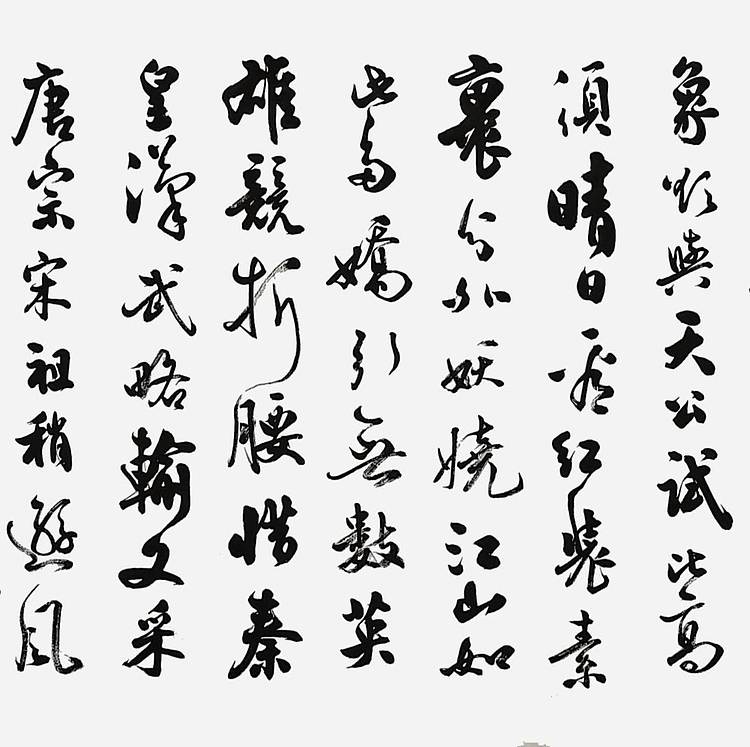 象欲與天公試比高
須晴日看紅裝素
裹分外妖嬈江山如
此多嬌引無數英
雄競折腰惜秦
皇漢武略輸文采
唐宗宋祖稍遜風